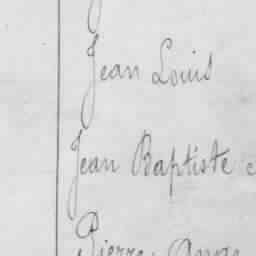 Jean Louis
Jean Baptiste
Pierre